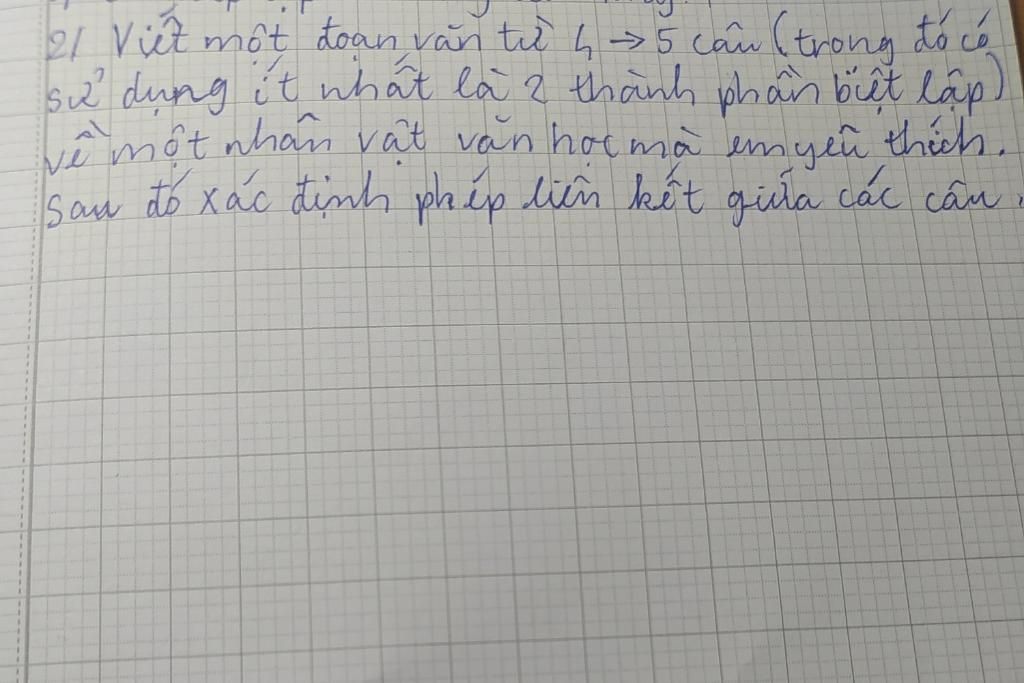 2/ Viết một đoạn văn từ 4 → 5 câu (trong đó có
sử dụng ít nhất là 2 thành phần biệt lập)
về một nhân vật văn học mà em yêu thích.
Sau đó xác định phép liên kết giữa các câu.